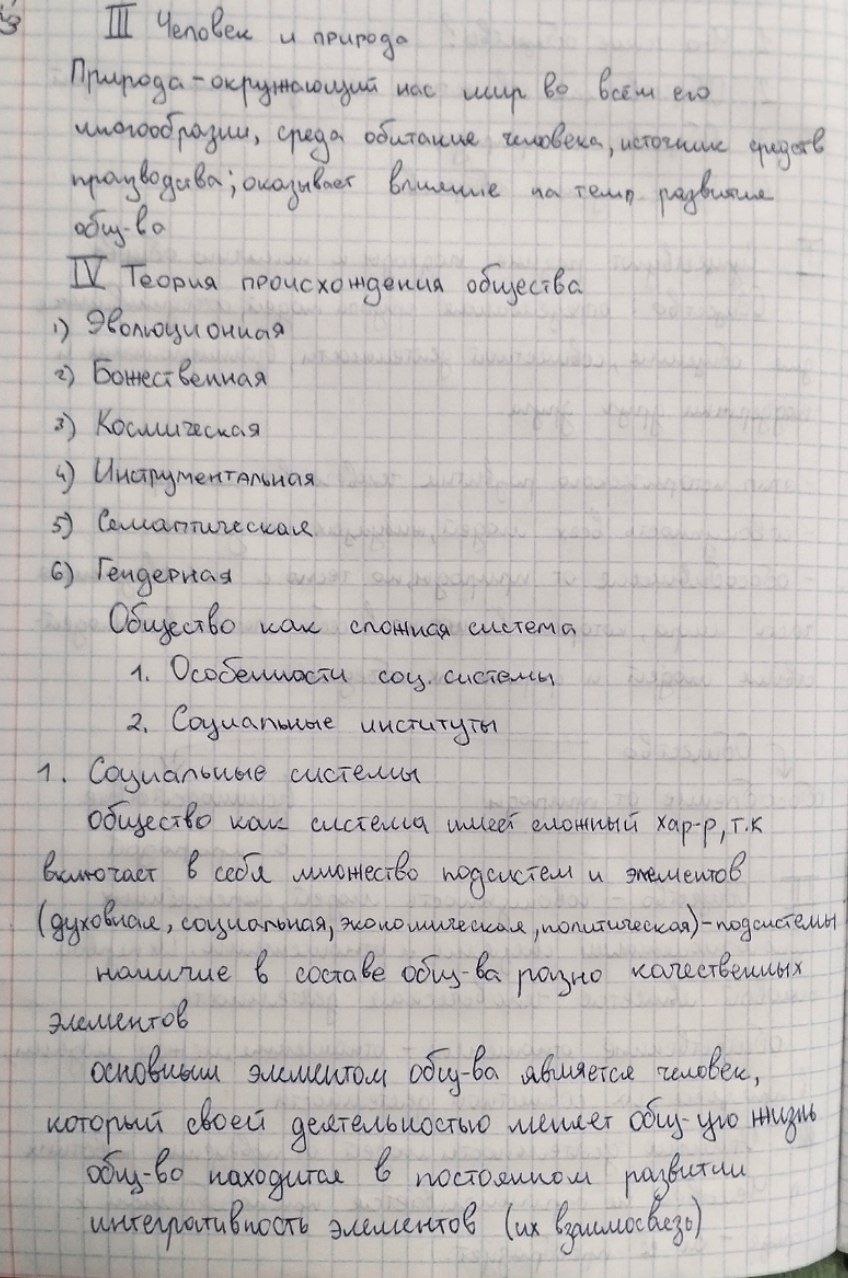 III Человек и природа
Природа - окружающий нас мир во всём его
многообразии, среда обитание человека, источник средств
производства; оказывает влияние на темп развития
общ-ва
IV Теория происхождения общества
1) Эволюционная
2) Божественная
3) Космическая
4) Инструментальная
5) Семантическая
6) Гендерная
Общество как сложная система
1. Особенности соц. системы
2. Социальные институты
1. Социальные системы
общество как система имеет сложный хар-р, т.к
включает в себя множество подсистем и элементов
(духовная, социальная, экономическая, политическая) - подсистемы
наличие в составе общ-ва разно качественных
элементов
основным элементом общ-ва является человек,
который своей деятельностью меняет общ-ую жизнь
общ-во находится в постоянном развитии
интегративность элементов (их взаимосвязь)